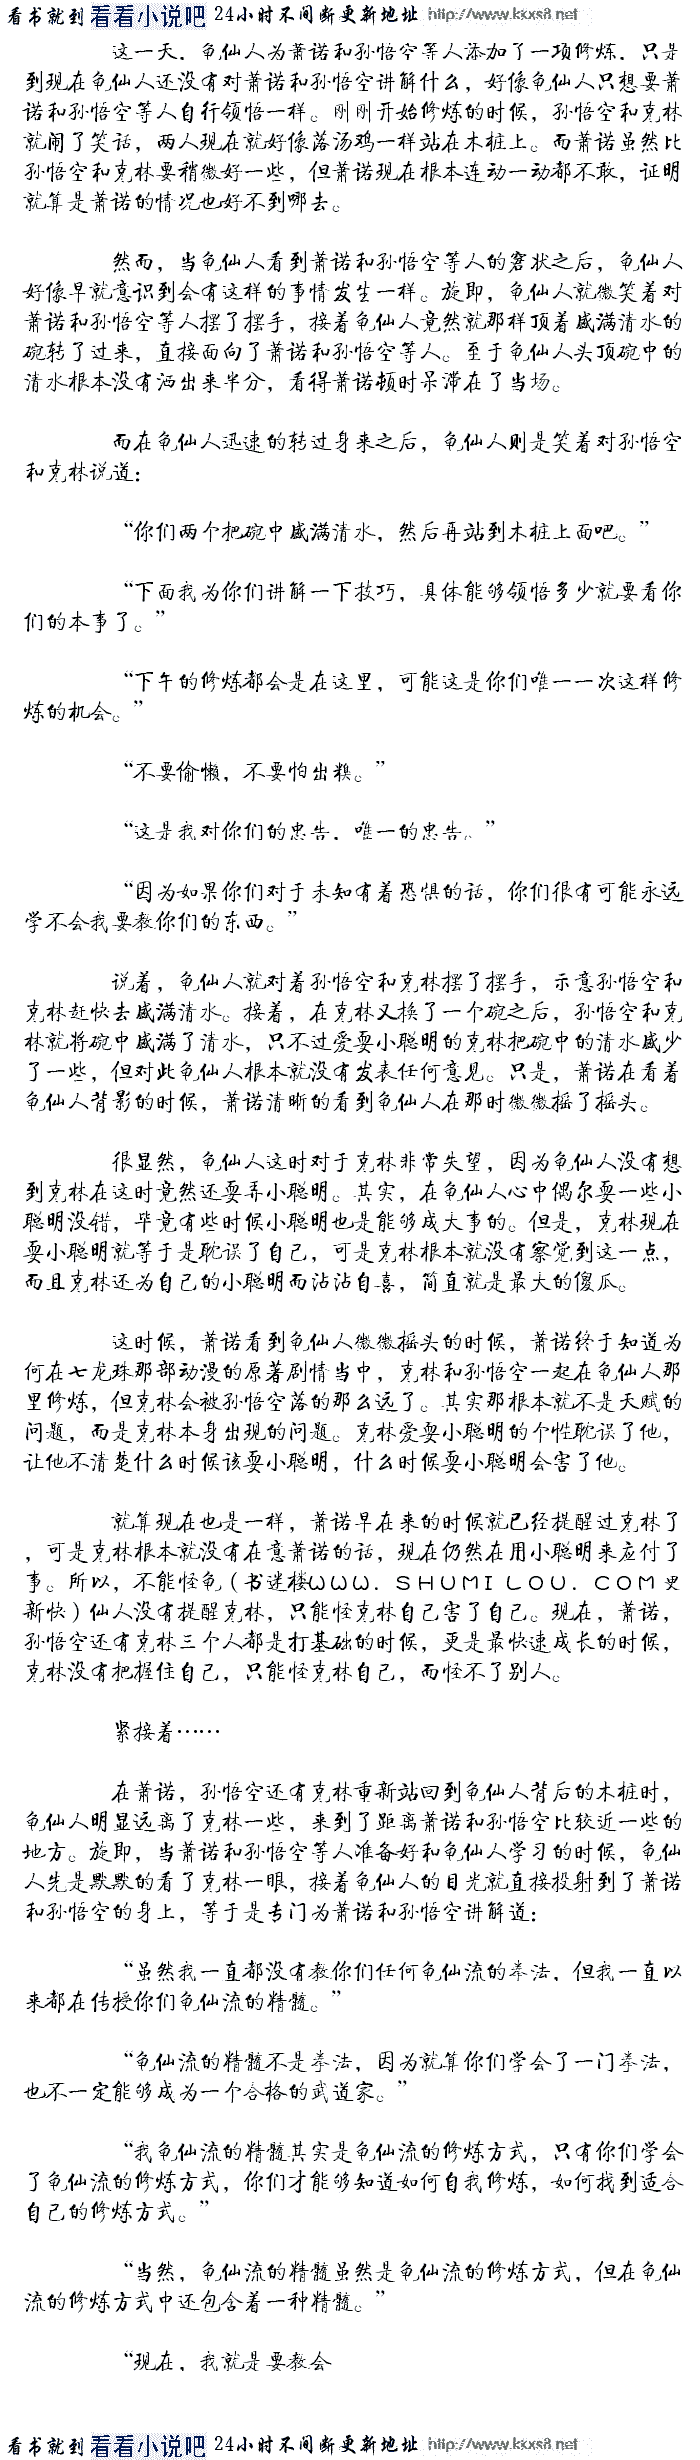 看书就到 看看小说吧 24小时不间断更新地址 http://www.kkxs8.net
这一天，龟仙人为萧诺和孙悟空等人添加了一项修炼，只是
到现在龟仙人还没有对萧诺和孙悟空讲解什么，好像龟仙人只想要萧
诺和孙悟空等人自行领悟一样。刚刚开始修炼的时候，孙悟空和克林
就闹了笑话，两人现在就好像落汤鸡一样站在木桩上。而萧诺虽然比
孙悟空和克林要稍微好一些，但萧诺现在根本连动一动都不敢，证明
就算是萧诺的情况也好不到哪去。
然而，当龟仙人看到萧诺和孙悟空等人的窘状之后，龟仙人
好像早就意识到会有这样的事情发生一样。旋即，龟仙人就微笑着对
萧诺和孙悟空等人摆了摆手，接着龟仙人竟然就那样顶着盛满清水的
碗转了过来，直接面向了萧诺和孙悟空等人。至于龟仙人头顶碗中的
清水根本没有洒出来半分，看得萧诺顿时呆滞在了当场。
而在龟仙人迅速的转过身来之后，龟仙人则是笑着对孙悟空
和克林说道：
“你们两个把碗中盛满清水，然后再站到木桩上面吧。”
“下面我为你们讲解一下技巧，具体能够领悟多少就要看你
们的本事了。”
“下午的修炼都会是在这里，可能这是你们唯一一次这样修
炼的机会。”
“不要偷懒，不要怕出糗。”
“这是我对你们的忠告，唯一的忠告。”
“因为如果你们对于未知有着恐惧的话，你们很有可能永远
学不会我要教你们的东西。”
说着，龟仙人就对着孙悟空和克林摆了摆手，示意孙悟空和
克林赶快去盛满清水。接着，在克林又换了一个碗之后，孙悟空和克
林就将碗中盛满了清水，只不过爱耍小聪明的克林把碗中的清水盛少
了一些，但对此龟仙人根本就没有发表任何意见。只是，萧诺在看着
龟仙人背影的时候，萧诺清晰的看到龟仙人在那时微微摇了摇头。
很显然，龟仙人这时对于克林非常失望，因为龟仙人没有想
到克林在这时竟然还耍弄小聪明。其实，在龟仙人心中偶尔耍一些小
聪明没错，毕竟有些时候小聪明也是能够成大事的。但是，克林现在
耍小聪明就等于是耽误了自己，可是克林根本就没有察觉到这一点，
而且克林还为自己的小聪明而沾沾自喜，简直就是最大的傻瓜。
这时候，萧诺看到龟仙人微微摇头的时候，萧诺终于知道为
何在七龙珠那部动漫的原著剧情当中，克林和孙悟空一起在龟仙人那
里修炼，但克林会被孙悟空落的那么远了。其实那根本就不是天赋的
问题，而是克林本身出现的问题。克林爱耍小聪明的个性耽误了他，
让他不清楚什么时候该耍小聪明，什么时候耍小聪明会害了他。
就算现在也是一样，萧诺早在来的时候就已经提醒过克林了
，可是克林根本就没有在意萧诺的话，现在仍然在用小聪明来应付了
事。所以，不能怪龟（书迷楼ＷＷＷ．ＳＨＵＭＩＬＯＵ．ＣＯＭ更
新快）仙人没有提醒克林，只能怪克林自己害了自己。现在，萧诺，
孙悟空还有克林三个人都是打基础的时候，更是最快速成长的时候，
克林没有把握住自己，只能怪克林自己，而怪不了别人。
紧接着……
在萧诺，孙悟空还有克林重新站回到龟仙人背后的木桩时，
龟仙人明显远离了克林一些，来到了距离萧诺和孙悟空比较近一些的
地方。旋即，当萧诺和孙悟空等人准备好和龟仙人学习的时候，龟仙
人先是默默的看了克林一眼，接着龟仙人的目光就直接投射到了萧诺
和孙悟空的身上，等于是专门为萧诺和孙悟空讲解道：
“虽然我一直都没有教你们任何龟仙流的拳法，但我一直以
来都在传授你们龟仙流的精髓。”
“龟仙流的精髓不是拳法，因为就算你们学会了一门拳法，
也不一定能够成为一个合格的武道家。”
“我龟仙流的精髓其实是龟仙流的修炼方式，只有你们学会
了龟仙流的修炼方式，你们才能够知道如何自我修炼，如何找到适合
自己的修炼方式。”
“当然，龟仙流的精髓虽然是龟仙流的修炼方式，但在龟仙
流的修炼方式中还包含着一种精髓。”
“现在，我就是要教会
看书就到 看看小说吧 24小时不间断更新地址 http://www.kkxs8.net